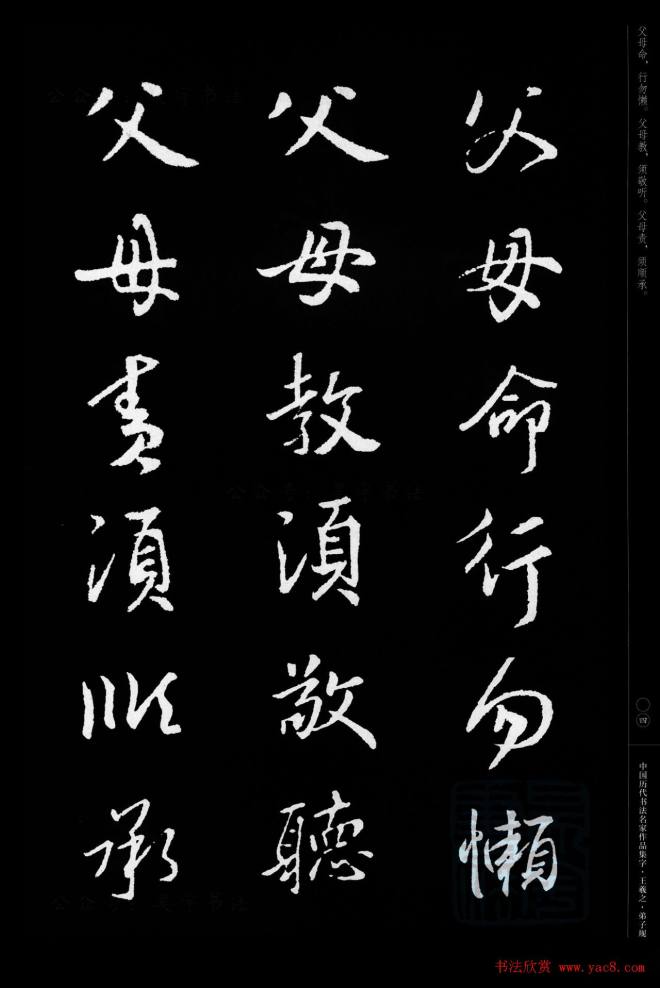 父母命，行勿懒。父母教，须敬听。父母责，须顺承。
父母命行勿懶
父母教須敬聽
父母責須順承
〇四
中国历代书法名家作品集字·王羲之·弟子规
书法欣赏 www.yac8.com